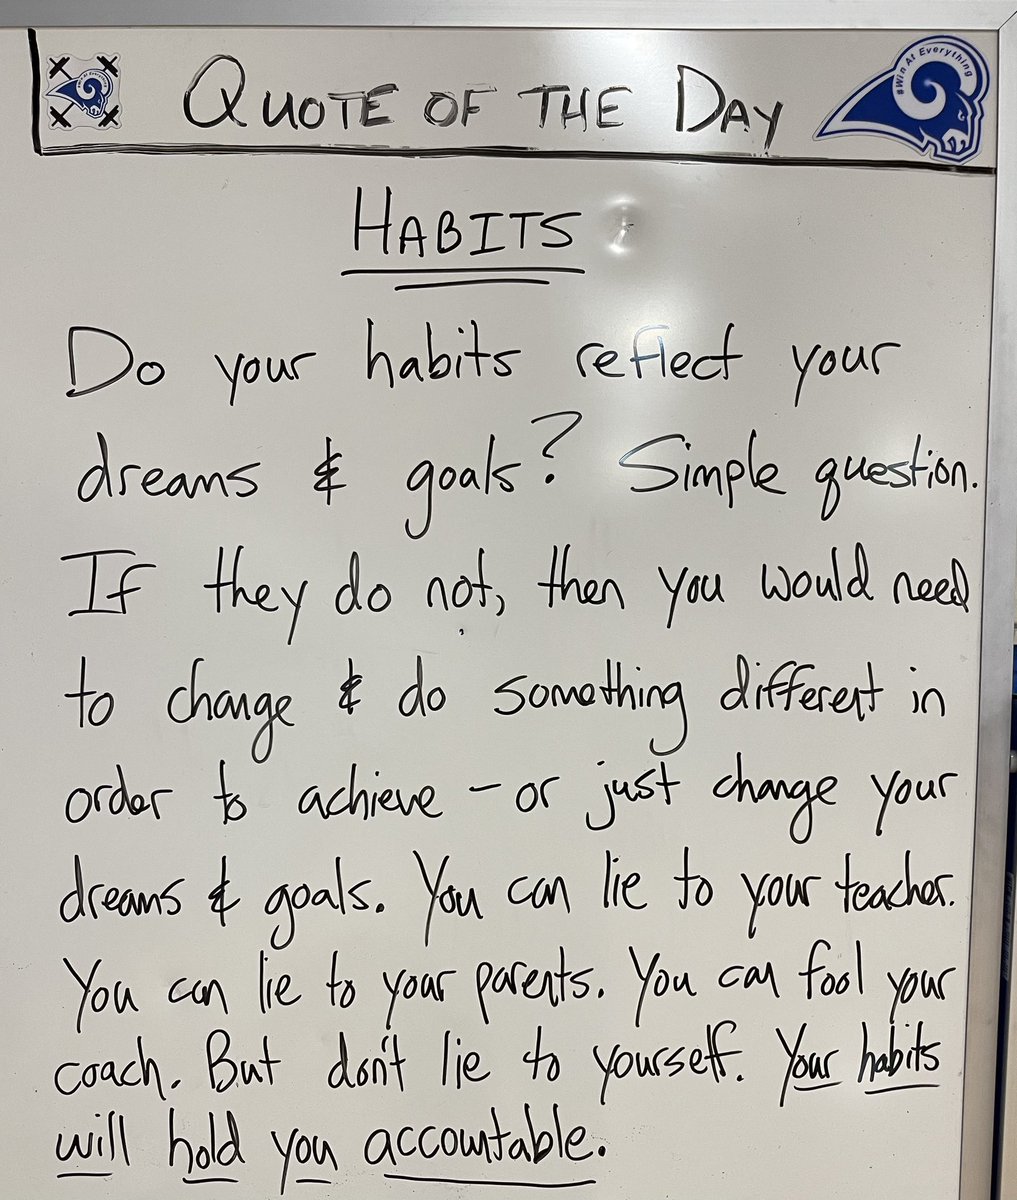 QUOTE OF THE DAY
#Win At Everything
HABITS
Do your habits reflect your
dreams & goals? Simple question.
If they do not, then you would need
to change & do something different in
order to achieve - or just change your
dreams & goals. You can lie to your teacher.
You can lie to your parents. You can fool your
coach. But don't lie to yourself. Your habits
will hold you accountable.